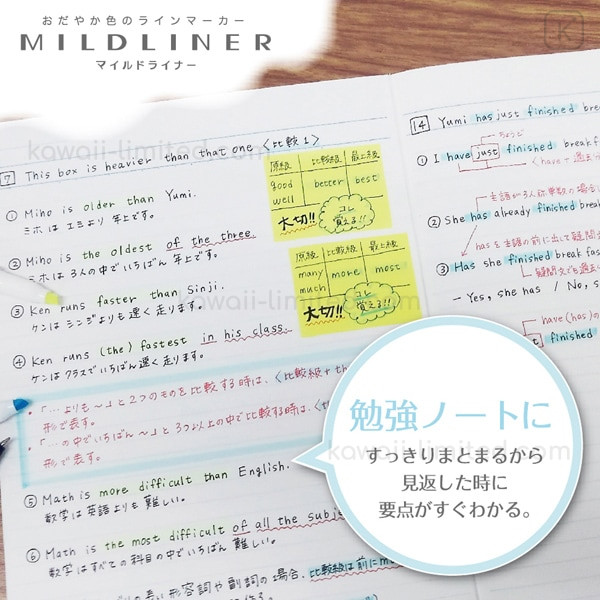 おだやか色のラインマーカー
MILDLINER
マイルドライナー
K
kawaii-limited.com
7 This box is heavier than that one〈比較1〉
① Miho is older than Yumi.
ミホはエミより年上です。
② Miho is the oldest of the three.
ミホは3人の中でいちばん年上です。
③ Ken runs faster than Sinji.
ケンはシンジよりも速く走ります。
④ Ken runs (the) fastest in his class.
ケンはクラスでいちばん速く走ります。
・「…よりも～」と2つのものを比較する時は、〈比較級+th
形で表す。
・「…の中でいちばん～」と3つ以上の中で比較する時は、〈th
形で表す。
⑤ Math is more difficult than English.
数学は英語よりも難しい。
⑥ Math is the most difficult of all the subj
数学はすべての科目の中でいちばん難しい。
長い形容詞や副詞の場合、比較級は前にm
原級 比較級 最上級
good better best
well
大切!! コレ覚える!!
原級 比較級 最上級
many more most
much
大切!! コレ覚える!!
kawaii-limited.com
14 Yumi has just finished bre
ちょうど
① I have just finished breakf
〈have+過去
主語が3人称単数の場合
② She has already finished break
hasを主語の前に出して疑問文
③ Has she finished break
疑問文でも過去
- Yes, she has / No, s
have(has)の
finished
勉強ノートに
すっきりまとまるから
見返した時に
要点がすぐわかる。
kawaii-limited.com